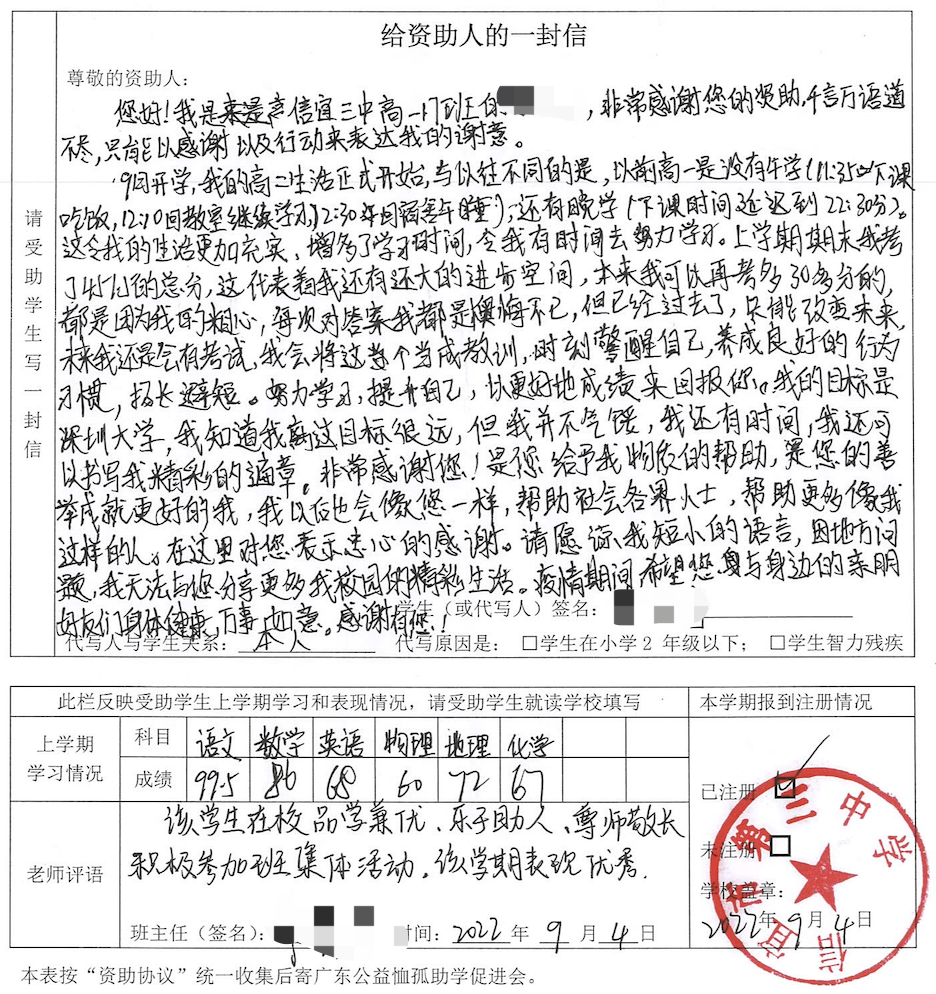 给资助人的一封信
尊敬的资助人：
您好！我是来是声信宜三中高一17班的，非常感谢您的资助，千言万语道
不尽，只能以感谢以及行动来表达我的谢意。
9月开学，我的高二生活正式开始，与以往不同的是，以前高一是没有午学（11:35下课
吃饭，12:10回教室继续学习12:30午睡）；还有晚学（下课时间延迟到22:30分）。
这令我的生活更加充实、增多了学习时间，令我有时间去努力学习。上学期期末我考
了的总分，这代表着我还有还大的进步空间，本来我可以再考多30多分的，
都是因为我的粗心，每次对答案我都是懊悔不已，但已经过去了，只能改变未来，
未来我还是会有考试，我会将这当成教训，时刻警醒自己，养成良好的行为
习惯，扬长避短。努力学习，提升自己，以更好地成绩来回报你。我的目标是
深圳大学，我知道我离这目标很远，但我并不气馁，我还有时间，我还可
以书写我精彩的篇章。非常感谢您！是您给予我物质的帮助，是您的善
举成就更好的我，我以后也会像您一样，帮助社会各界人士，帮助更多像我
这样的人。在这里对您表示忠心的感谢。请愿谅我短小的语言，因地方问
题，我无法与您分享更多我校园的精彩生活。疫情期间希望您与身边的亲朋
好友们身体健康，万事如意。感谢有您！
学生（或代写人）签名：
代写人与学生关系：本人 代写原因是：□学生在小学2 年级以下；□学生智力残疾
请受助学生写一封信
此栏反映受助学生上学期学习和表现情况，请受助学生就读学校填写 本学期报到注册情况
上学期学习情况
科目 语文 数学 英语 物理 地理 化学
成绩 99.5 86 68 60 72 67
已注册
未注册
学校盖章：
2022年9月4日
信宜市第三中学
老师评语
该学生在校品学兼优、乐于助人、尊师敬长
积极参加班集体活动。该学期表现优秀.
班主任（签名）： 时间：2022 年 9 月 4 日
本表按“资助协议”统一收集后寄广东公益恤孤助学促进会。